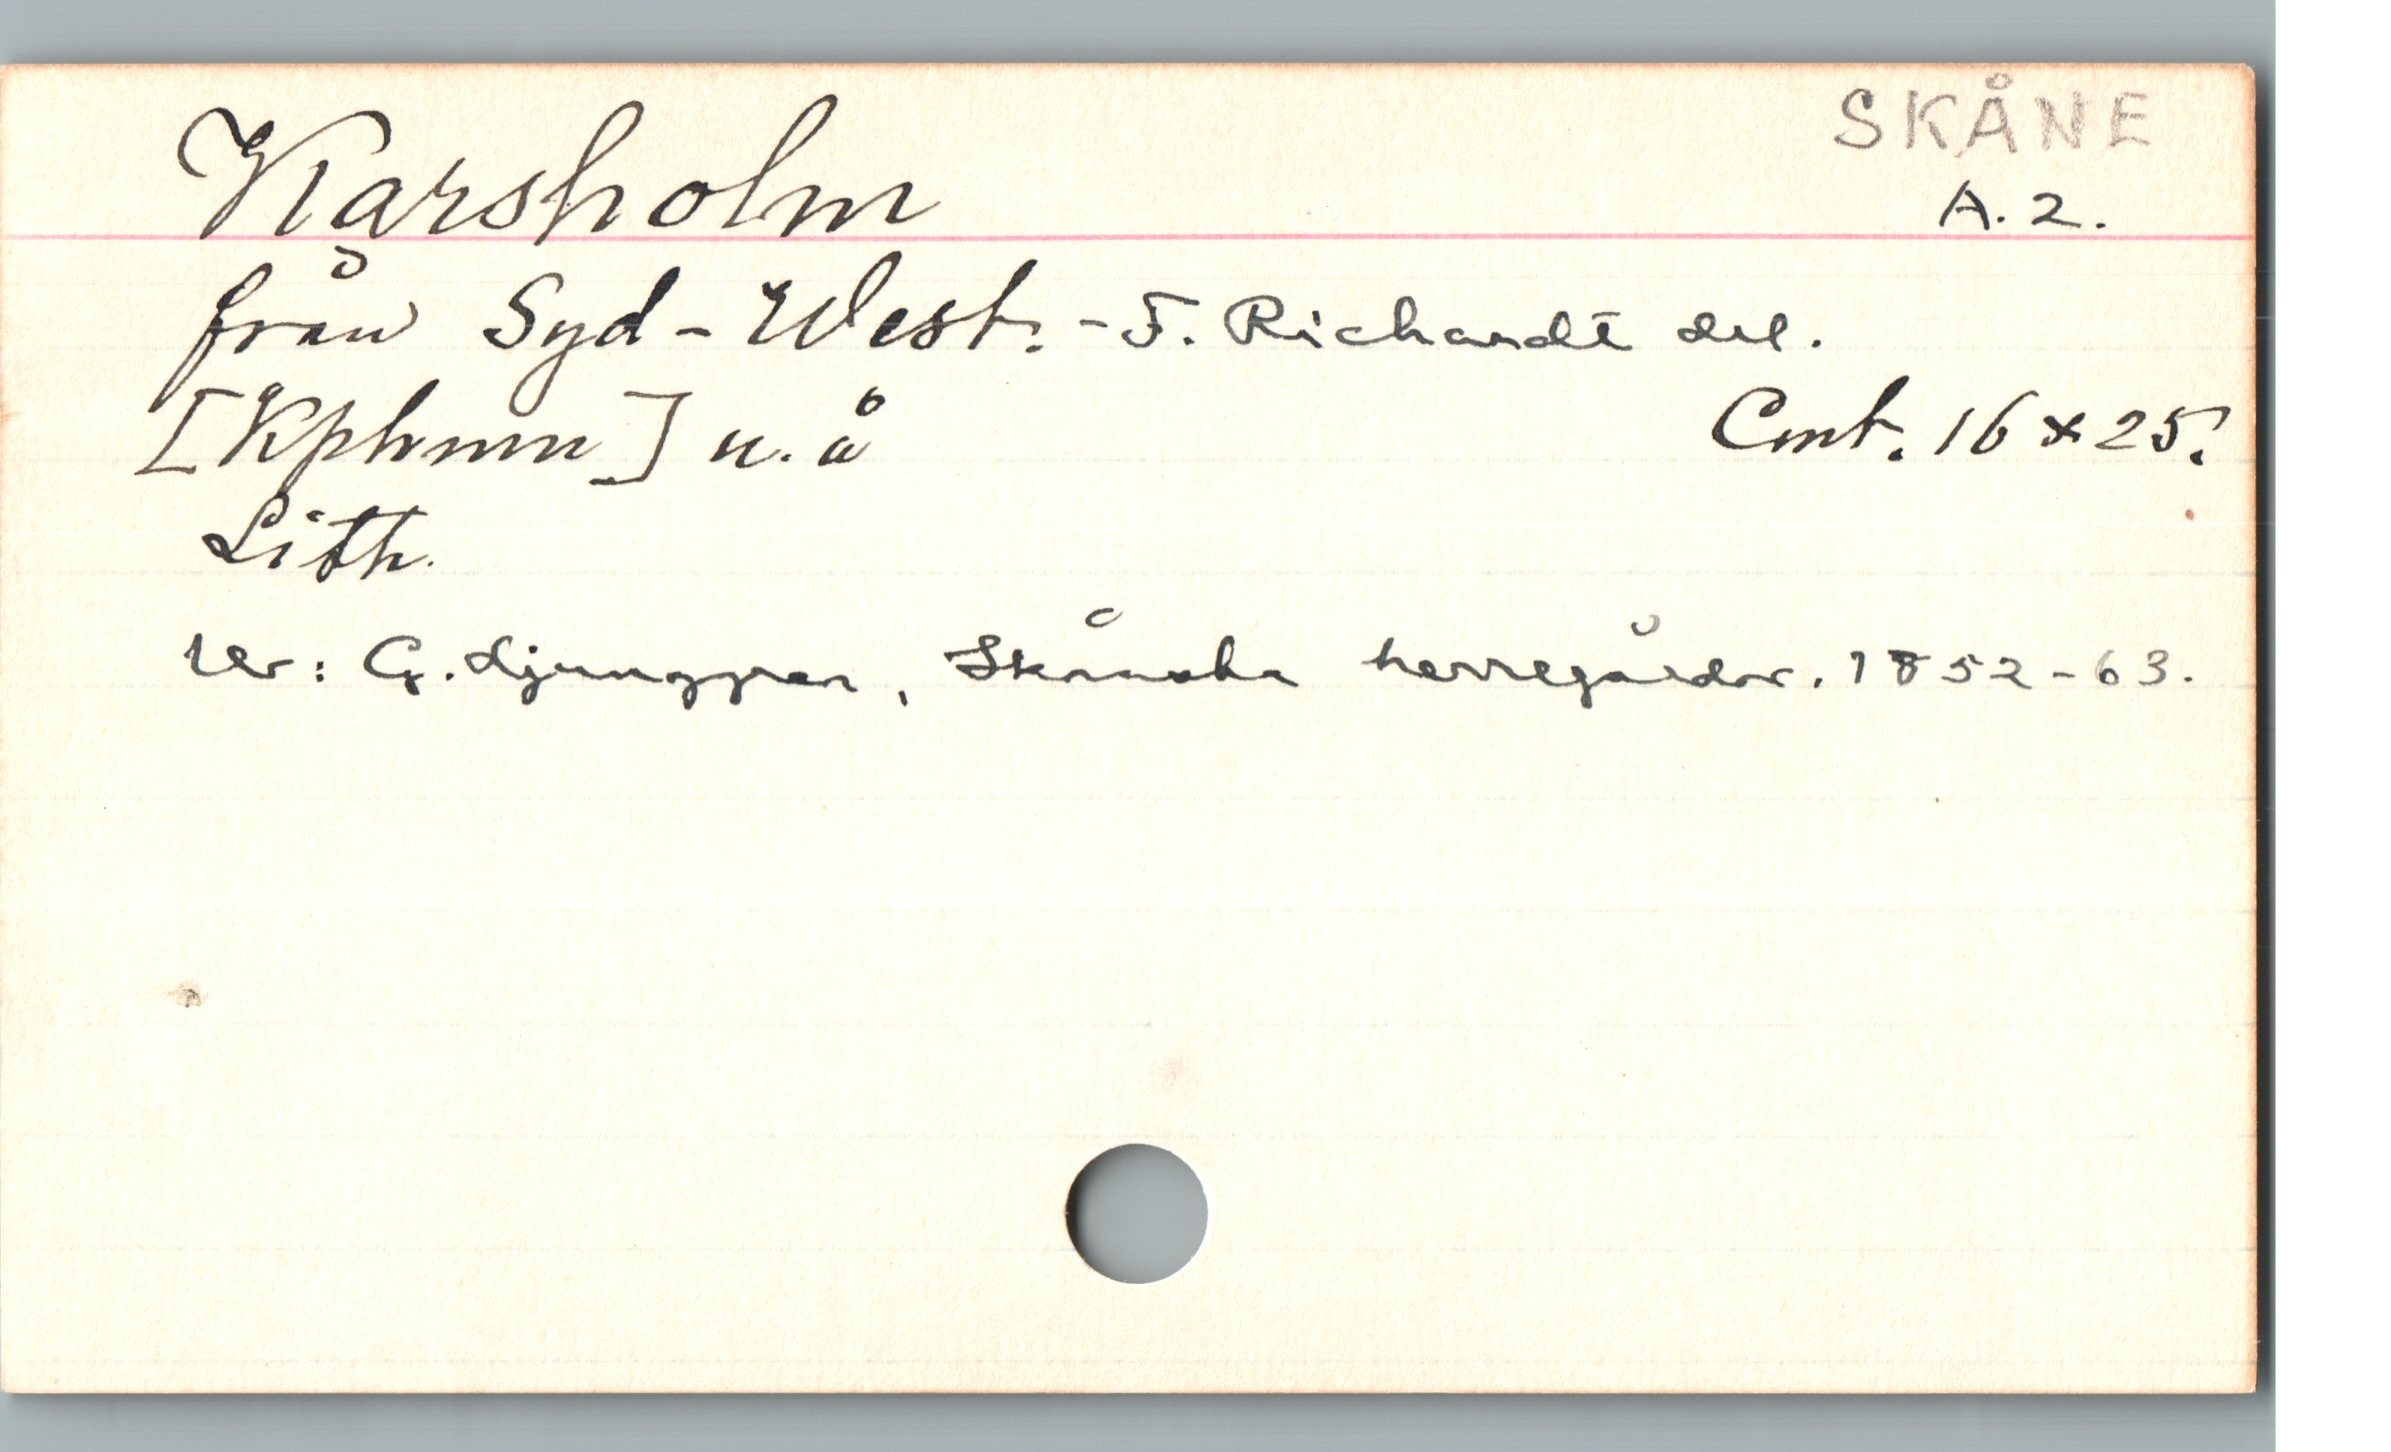 Karsholm
SKÅNE
A. 2.
från Syd-West. - F. Richardt del.
[Kphmn] u. å
Cmt. 16 x 25.
Lith.
Ur: G. Ljunggren, Skånska herregårdar. 1852-63.